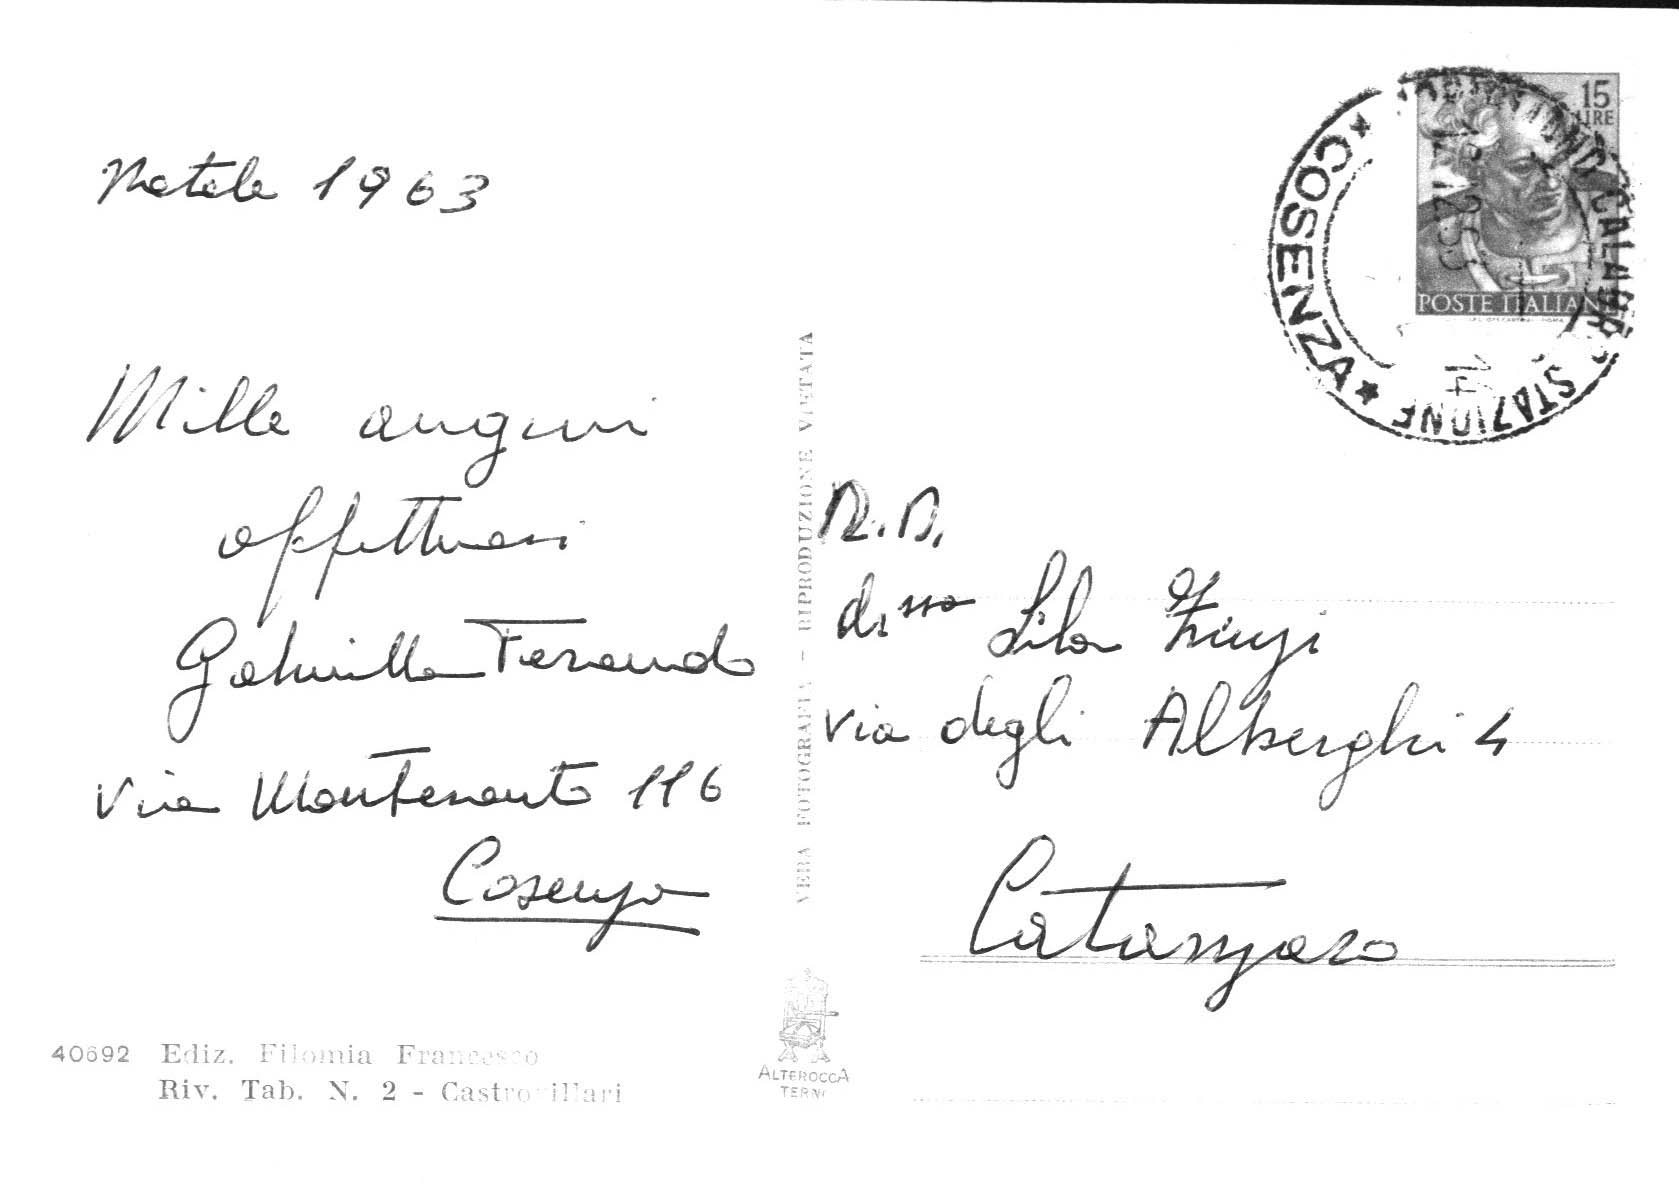 Natale 1963
Mille auguri
affettuosi
Gabriella
Via Montesanto 116
Cosenza
40692 Ediz. Filomia Francesco
Riv. Tab. N. 2 - Castrovillari
VERA FOTOGRAFIA - RIPRODUZIONE VIETATA
ALTEROCCA
TERNI
15
LIRE
POSTE ITALIANE
* COSENZA *
STAZIONE
N.D.
d.ssa Lila
via degli Alberghi 4
Catanzaro